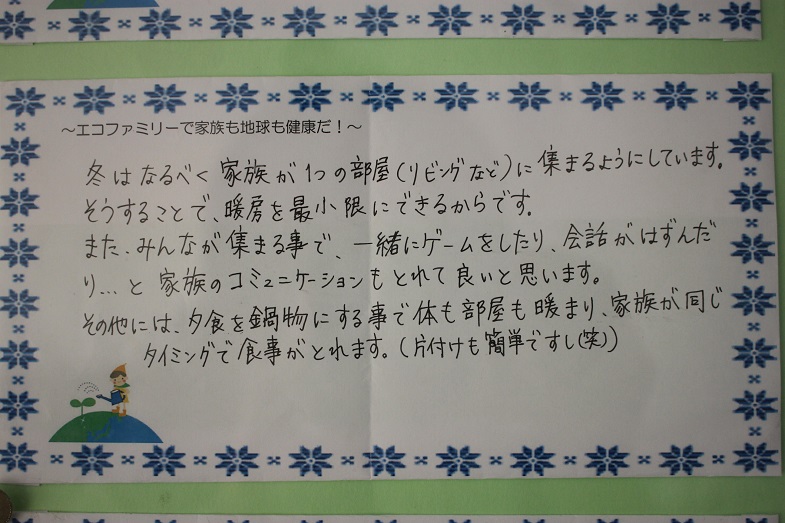 ～エコファミリーで家族も地球も健康だ！～
冬はなるべく家族が1つの部屋(リビングなど)に集まるようにしています。
そうすることで、暖房を最小限にできるからです。
また、みんなが集まる事で、一緒にゲームをしたり、会話がはずんだ
り…と家族のコミュニケーションもとれて良いと思います。
その他には、夕食を鍋物にする事で体も部屋も暖まり、家族が同じ
タイミングで食事がとれます。(片付けも簡単ですし(笑))